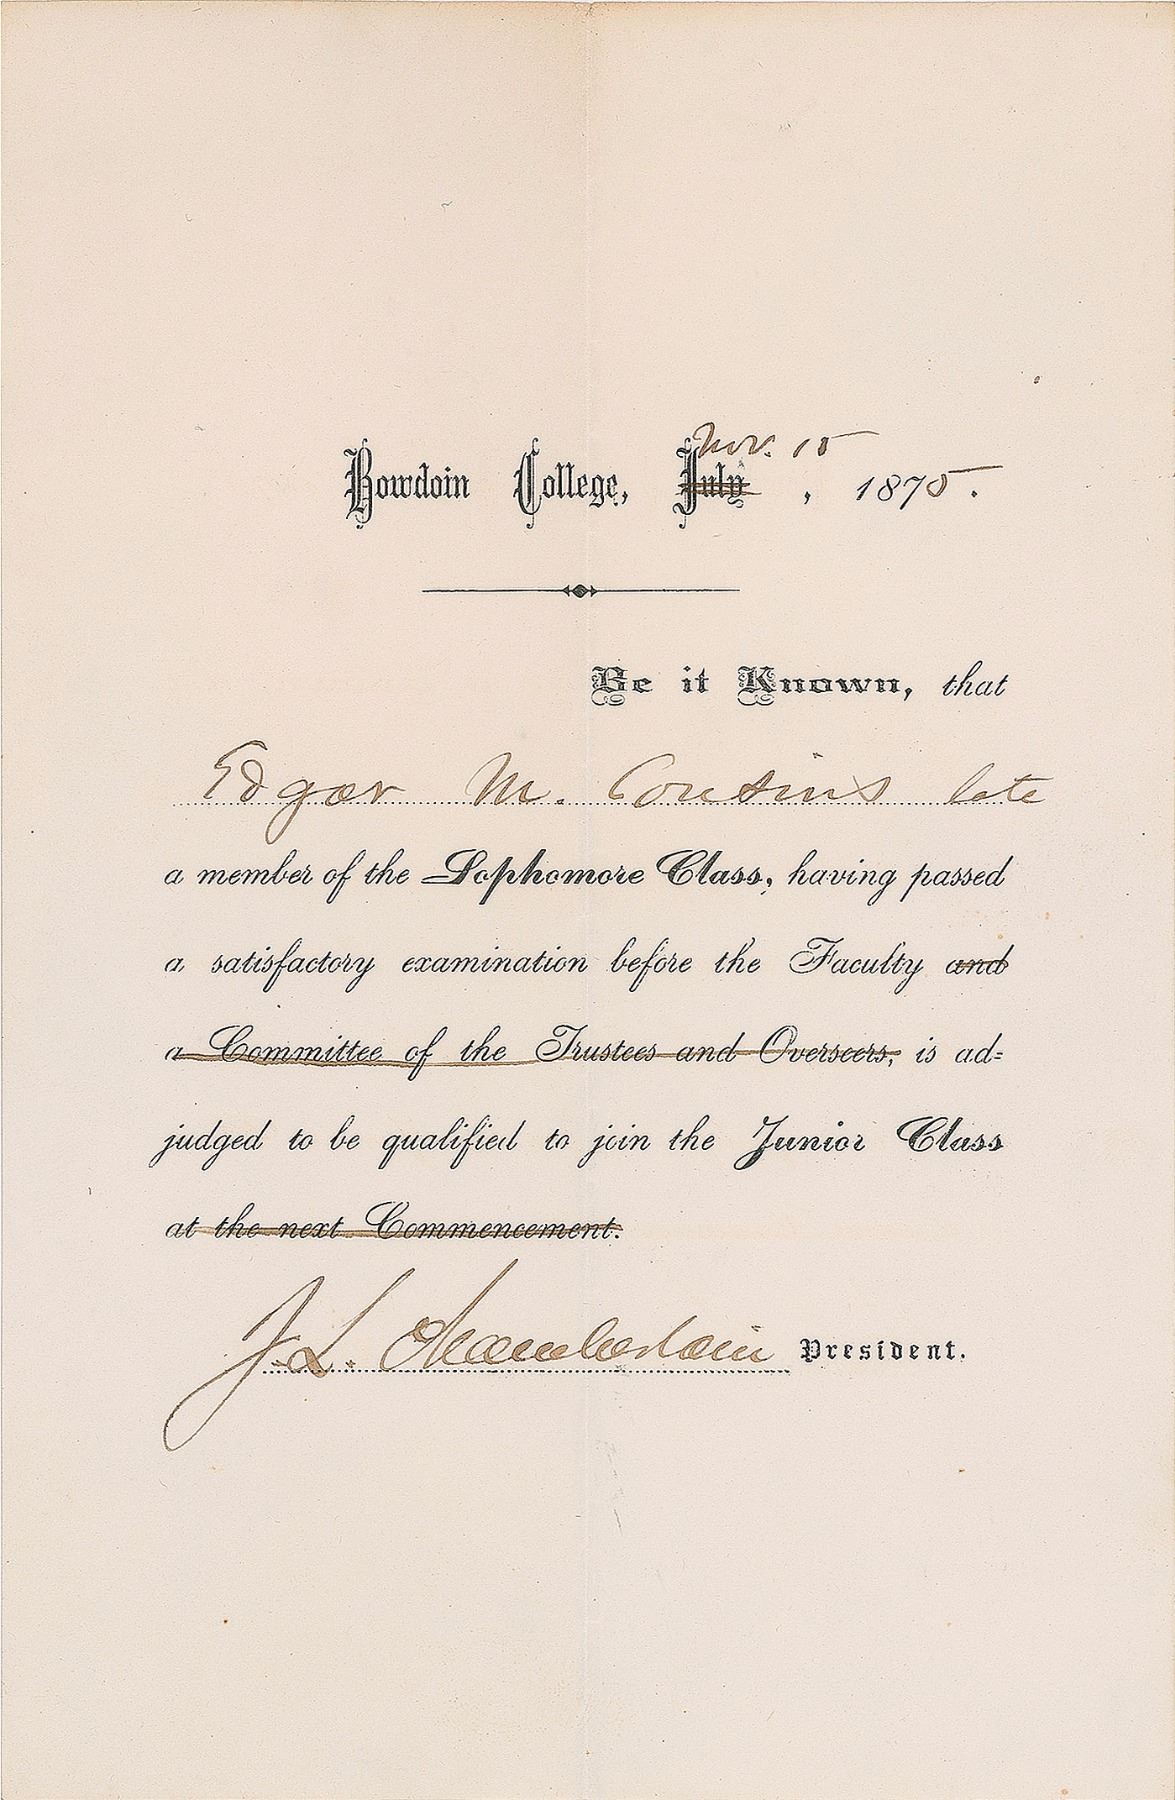 Nov. 15
Bowdoin College, July , 1875.
Be it Known, that
Edgar M. Cousins late
a member of the Sophomore Class, having passed
a satisfactory examination before the Faculty and
a Committee of the Trustees and Overseers, is ad=
judged to be qualified to join the Junior Class
at the next Commencement.
J. L. Chamberlain President.